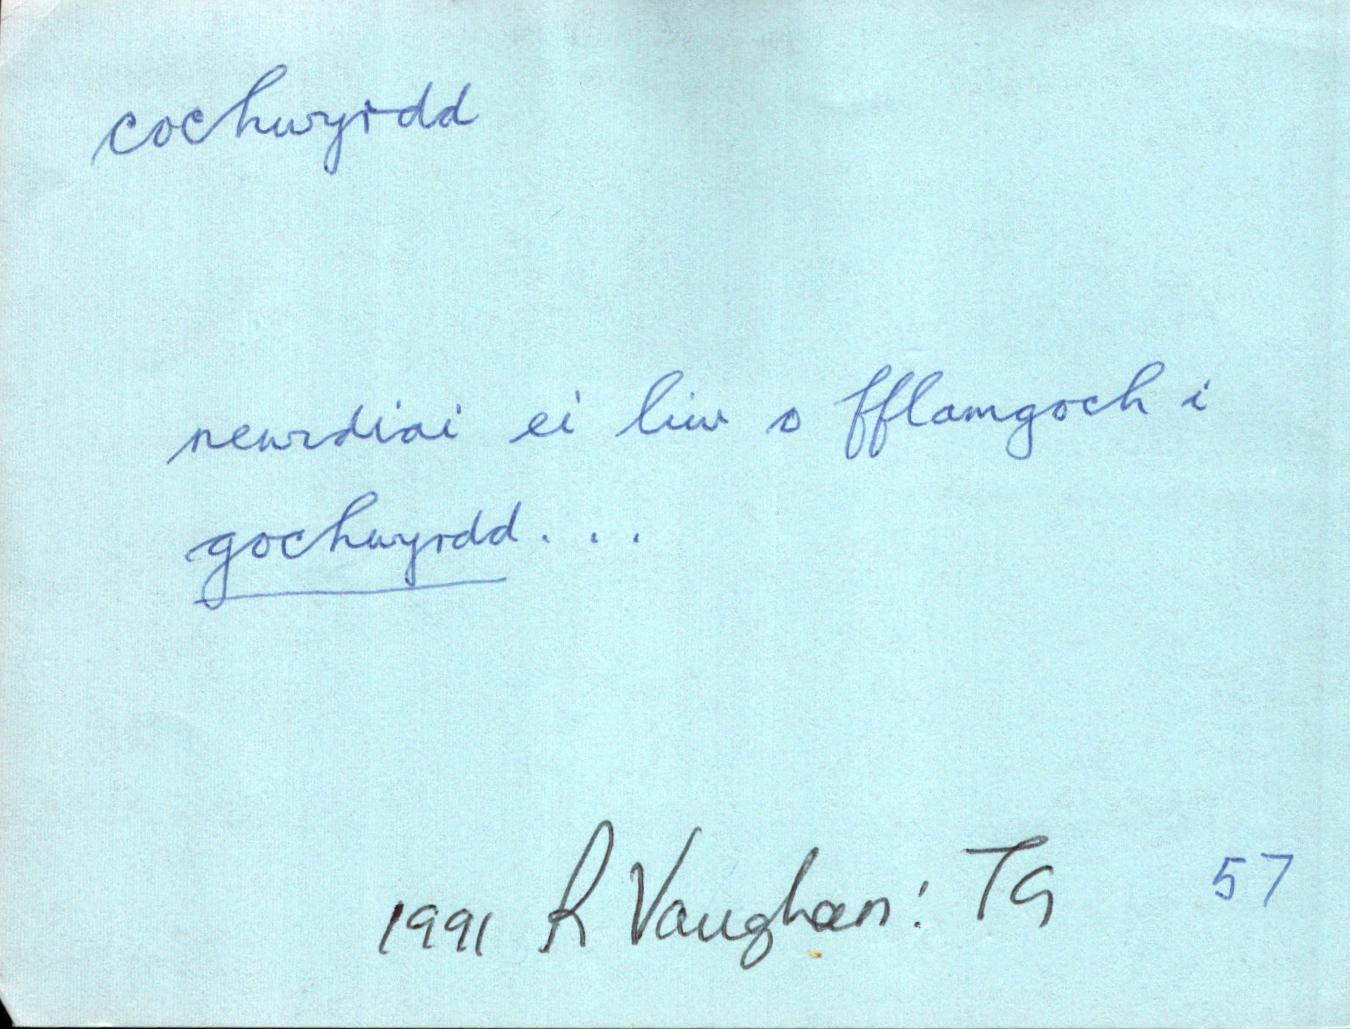 cochwyrdd
newidiai ei liw o fflamgoch i
gochwyrdd...
1991 R Vaughan: TG 57